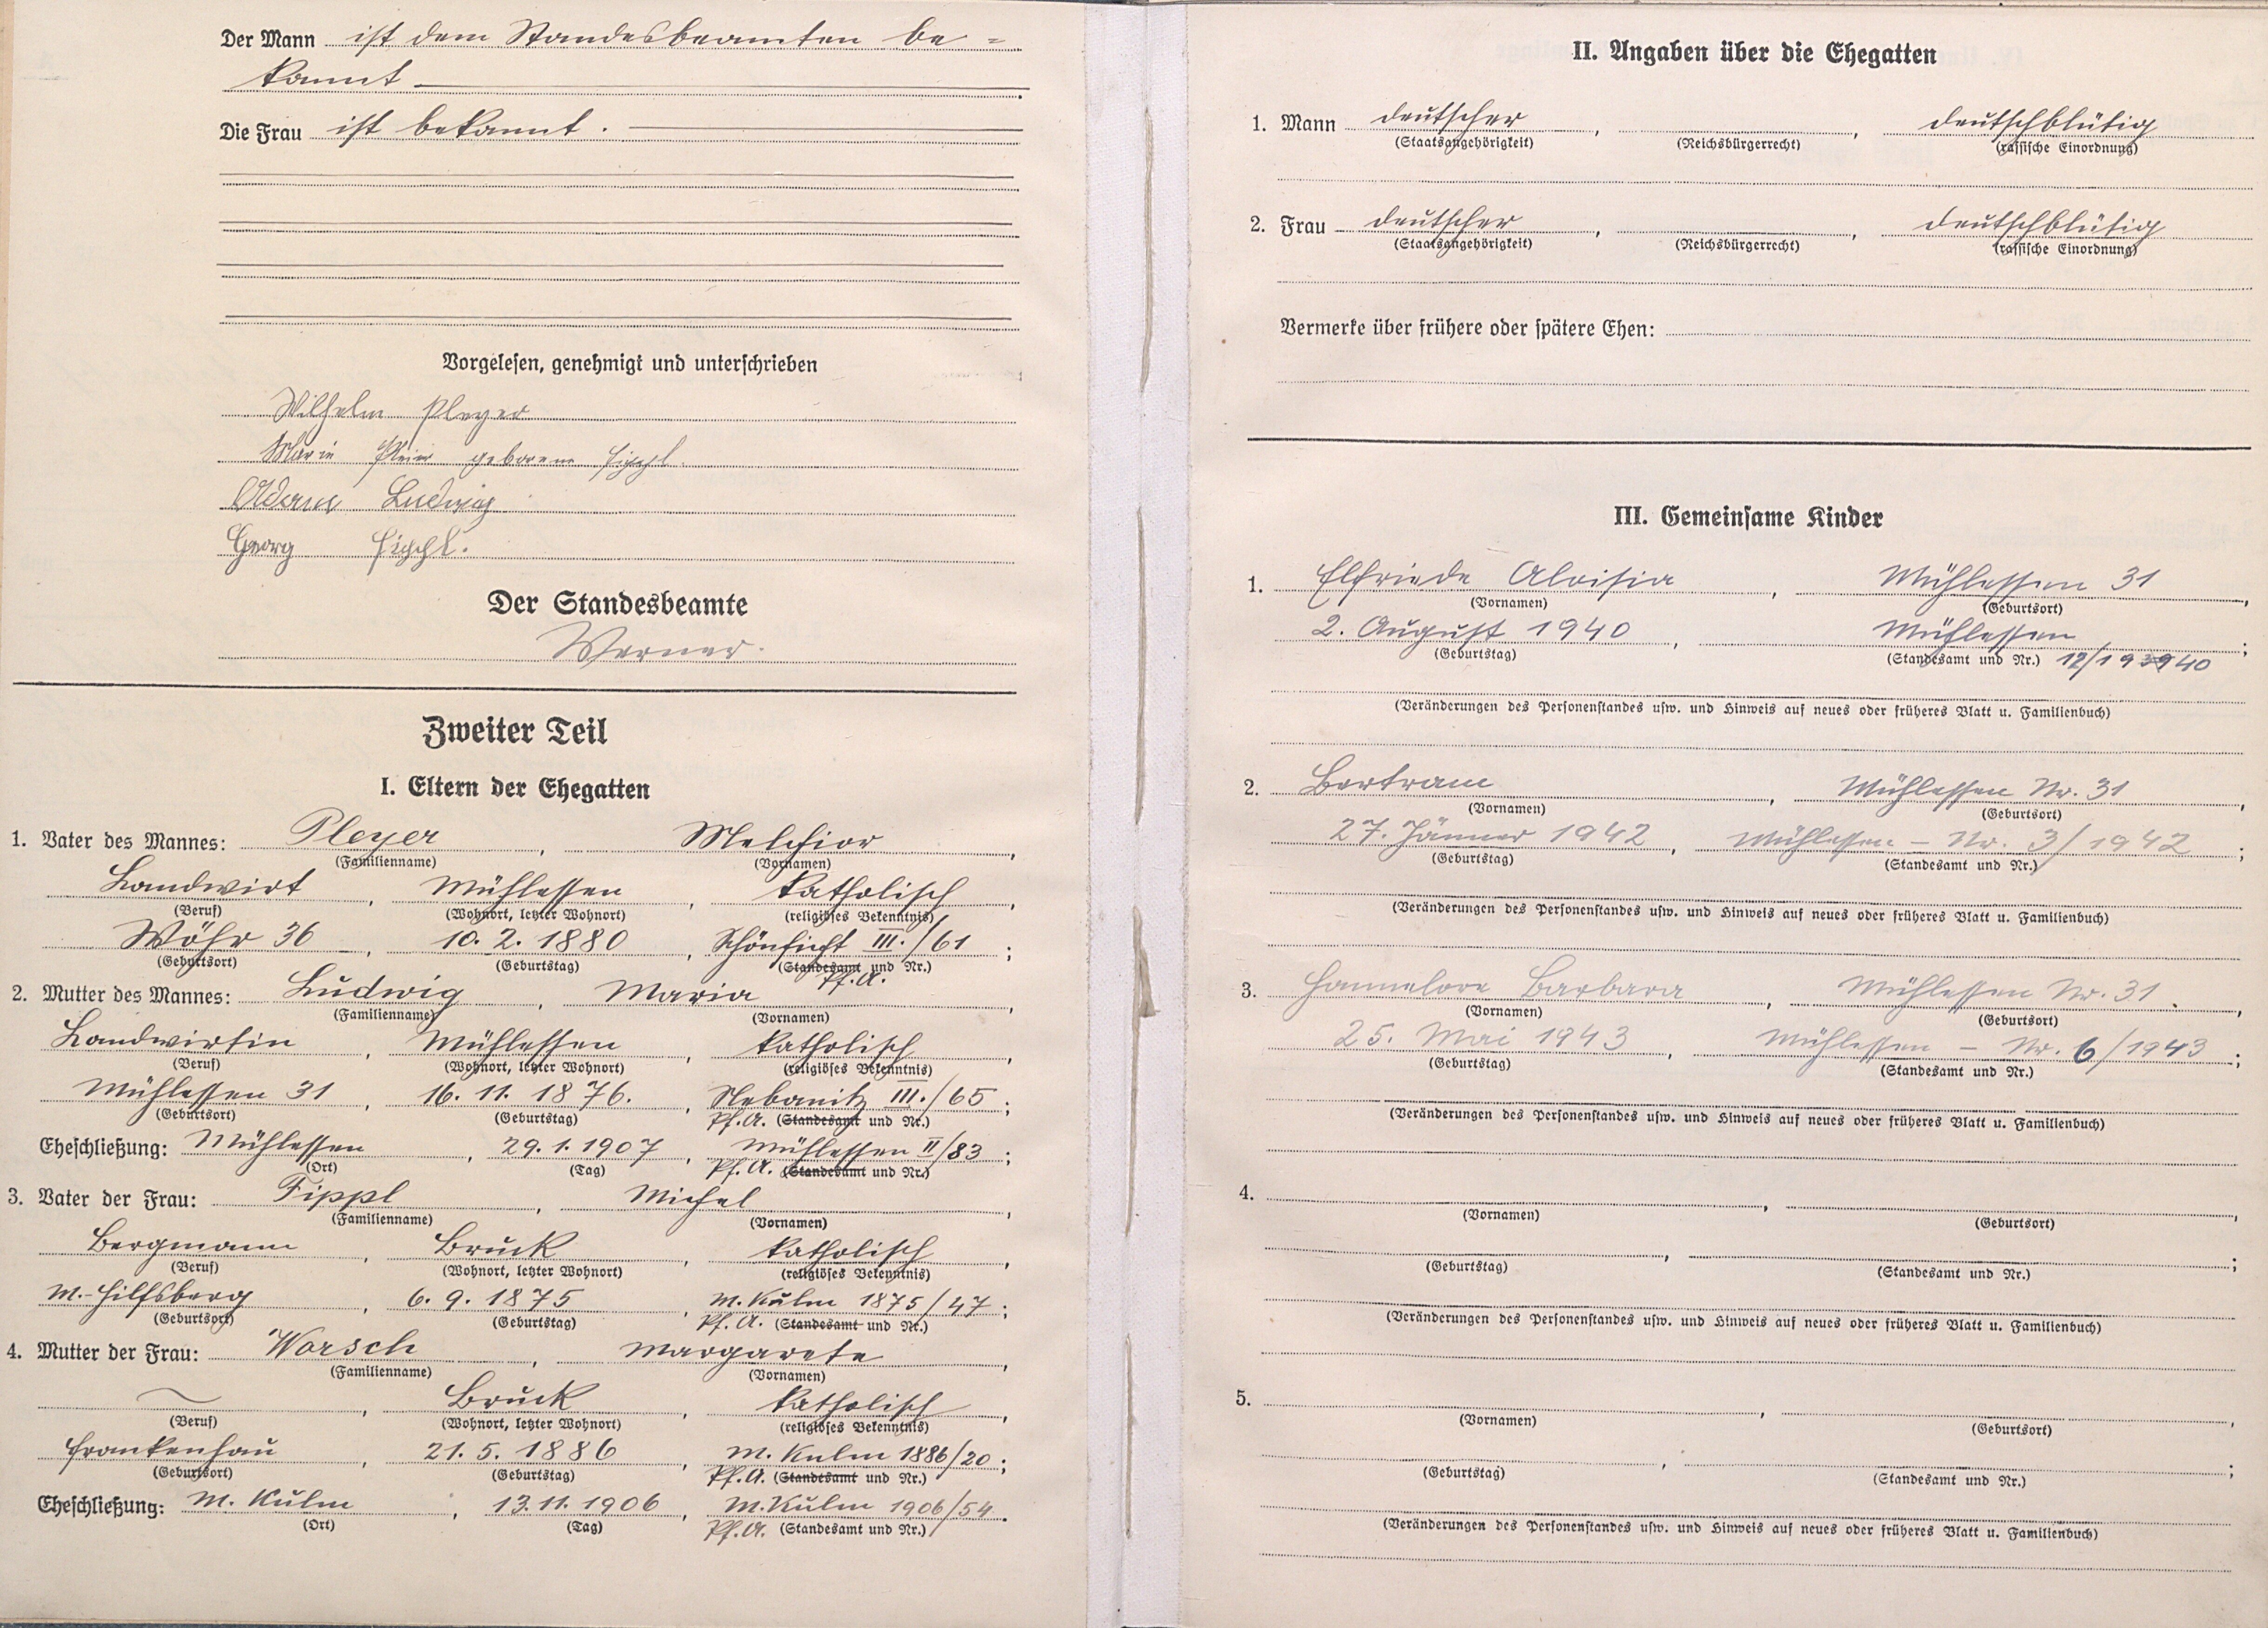 Der Mann ist dem Standesbeamten be=
kannt
Die Frau ist bekannt.
Vorgelesen, genehmigt und unterschrieben
Wilhelm Pleyer
Marie Pleier geborene Fippl
Adam Ludwig
Georg Fippl.
Der Standesbeamte
Werner.
Zweiter Teil
I. Eltern der Ehegatten
1. Vater des Mannes: Pleyer, Melchior,
(Familienname) (Vornamen)
Landwirt, Mühlessen, katholisch,
(Beruf) (Wohnort, letzter Wohnort) (religiöses Bekenntnis)
Wöhr 36, 10. 2. 1880, Schönficht III./61;
(Geburtsort) (Geburtstag) (Standesamt und Nr.)
Pf. A.
2. Mutter des Mannes: Ludwig, Maria,
(Familienname) (Vornamen)
Landwirtin, Mühlessen, katholisch,
(Beruf) (Wohnort, letzter Wohnort) (religiöses Bekenntnis)
Mühlessen 31, 16. 11. 1876., Nebanitz III./65;
(Geburtsort) (Geburtstag) Pf. A. (Standesamt und Nr.)
Eheschließung: Mühlessen, 29. 1. 1907, Mühlessen II/83;
(Ort) (Tag) Pf. A. (Standesamt und Nr.)
3. Vater der Frau: Fippl, Michel,
(Familienname) (Vornamen)
Bergmann, Bruck, katholisch,
(Beruf) (Wohnort, letzter Wohnort) (religiöses Bekenntnis)
M.-Hilfsberg, 6. 9. 1875, M. Kulm 1875/47;
(Geburtsort) (Geburtstag) Pf. A. (Standesamt und Nr.)
4. Mutter der Frau: Worsch, Margarete,
(Familienname) (Vornamen)
, Bruck, katholisch,
(Beruf) (Wohnort, letzter Wohnort) (religiöses Bekenntnis)
Frankenhau, 21. 5. 1886, M. Kulm 1886/20;
(Geburtsort) (Geburtstag) Pf. A. (Standesamt und Nr.)
Eheschließung: M. Kulm, 13. 11. 1906, M. Kulm 1906/54.
(Ort) (Tag) Pf. A. (Standesamt und Nr.)
II. Angaben über die Ehegatten
1. Mann deutscher, , deutschblütig
(Staatsangehörigkeit) (Reichsbürgerrecht) (rassische Einordnung)
2. Frau deutscher, , deutschblütig
(Staatsangehörigkeit) (Reichsbürgerrecht) (rassische Einordnung)
Vermerke über frühere oder spätere Ehen:
III. Gemeinsame Kinder
1. Elfriede Aloisia, Mühlessen 31,
(Vornamen) (Geburtsort)
2. August 1940, Mühlessen;
(Geburtstag) (Standesamt und Nr.) 12/193940
(Veränderungen des Personenstandes usw. und Hinweis auf neues oder früheres Blatt u. Familienbuch)
2. Bertram, Mühlessen Nr. 31,
(Vornamen) (Geburtsort)
27. Jänner 1942, Mühlessen - Nr. 3/1942;
(Geburtstag) (Standesamt und Nr.)
(Veränderungen des Personenstandes usw. und Hinweis auf neues oder früheres Blatt u. Familienbuch)
3. Hannelore Barbara, Mühlessen Nr. 31.,
(Vornamen) (Geburtsort)
25. Mai 1943, Mühlessen - Nr. 6/1943;
(Geburtstag) (Standesamt und Nr.)
(Veränderungen des Personenstandes usw. und Hinweis auf neues oder früheres Blatt u. Familienbuch)
4. , ,
(Vornamen) (Geburtsort)
, ;
(Geburtstag) (Standesamt und Nr.)
(Veränderungen des Personenstandes usw. und Hinweis auf neues oder früheres Blatt u. Familienbuch)
5. , ,
(Vornamen) (Geburtsort)
, ;
(Geburtstag) (Standesamt und Nr.)
(Veränderungen des Personenstandes usw. und Hinweis auf neues oder früheres Blatt u. Familienbuch)